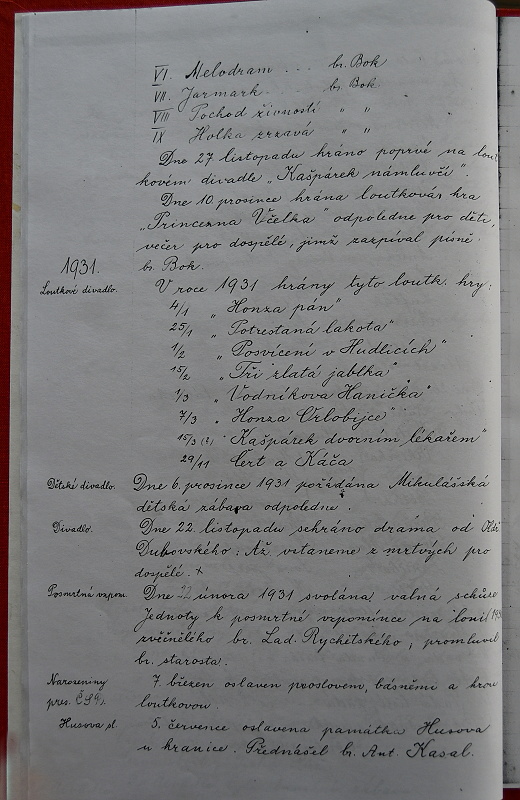 VI. Melodram ... br. Bok
VII. Jarmark ... br. Bok
VIII Pochod živností " "
IX Holka zrzavá " "
Dne 27 listopadu hráno poprvé na lout
kovém divadle „Kašpárek námluvčí".
Dne 10 prosince hrána loutková hra
„Princezna Včelka" odpoledne pro děti,
večer pro dospělé, jimž zazpíval písně
br. Bok.
1931.
Loutkové divadlo. V roce 1931 hrány tyto loutk. hry:
4/1 „Honza pán"
25/1 „Potrestaná lakota"
1/2 „Posvícení v Hudlicích"
15/2 „Tři zlatá jablka"
1/3 „Vodníkova Hanička"
7/3 „Honza Orlobijce"
15/3 (?) „Kašpárek dvorním lékařem"
29/11 Čert a Káča
Dětské divadlo. Dne 6. prosince 1931 pořádána Mikulášská
dětská zábava odpoledne.
Divadlo. Dne 22. listopadu sehráno drama od
Dubovského: Až vstaneme z mrtvých pro
dospělé. +
Posmrtná vzpom. Dne 22 února 1931 svolána valná schůze
Jednoty k posmrtné vzpomínce na loni
zvěčnělého br. Lad. Rychetského, promluvil
br. starosta.
Narozeniny 7. březen oslaven proslovem, básněmi a hrou
pres. ČSR. loutkovou.
Husova sl. 5. července oslavena památka Husova
u hranice. Přednášel br. Ant. Kasal.